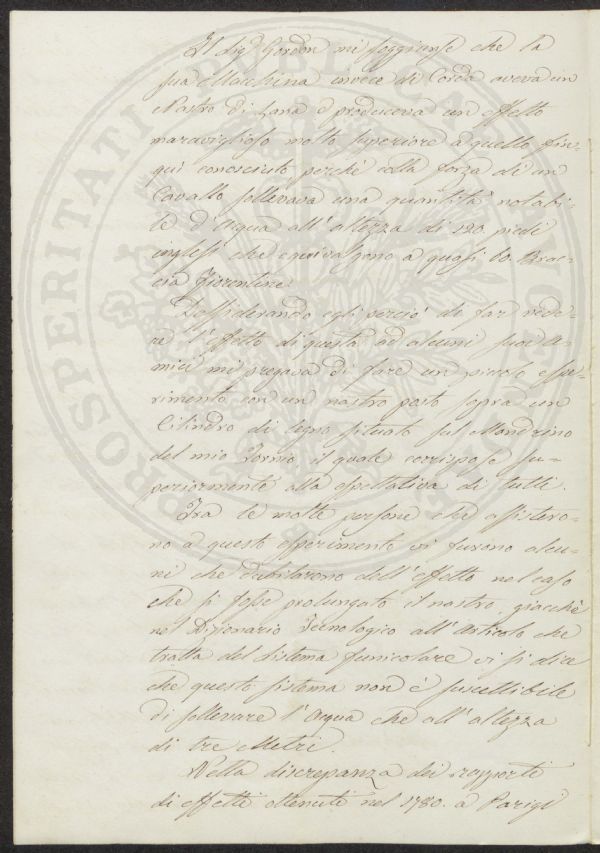 Il Sigr Gordon mi soggiunse che la
sua Macchina invece di Corda aveva un
Nastro di Lana e produceva un effetto
maraviglioso molto superiore a quello fin=
qui conosciuto perchè colla forza di un
Cavallo sollevava una quantità notabi=
le d'Acqua all'altezza di 120. piedi
inglesi che equivalgono a quasi 60. Brac=
cia Fiorentine.
Dessiderando egli perciò di far vede=
re l'effetto di questa ad alcuni suoi A=
mici mi pregava di fare un piccolo espe=
rimento con un nastro posto sopra un
Cilindro di legno situato sul Mandrino
del mio Tornio, il quale corrispose su=
periormente alla espettativa di tutti.
Tra le molte persone che assistero=
no a questo esperimento vi furono alcu=
ni che dubitarono dell'effetto nel caso
che si fosse prolungato il nastro, giacchè
nel Dizionario Tecnologico all'articolo che
tratta del sistema funicolare vi si dice
che questo sistema non è suscettibile
di sollevare l'Acqua che all'altezza
di tre Metri.
Nella discrepanza dei rapporti
di effetti ottenuti nel 1780. a Parigi
PROSPERITATI PUBLICAE